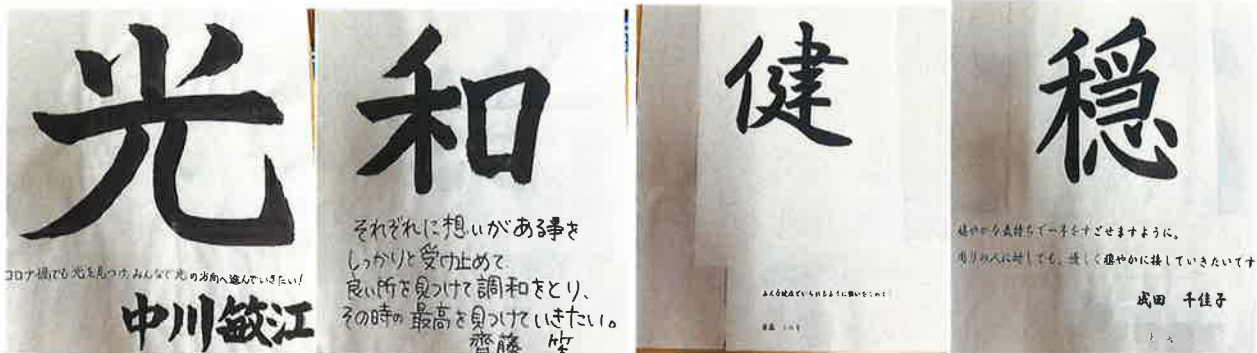 光
コロナ禍でも光を見つけ、みんなで光の方向へ進んでいきたい！
中川敏江
和
それぞれに想いがある事を
しっかりと受け止めて
良い所を見つけて調和をとり、
その時の最高を見つけていきたい。
齊藤
健
みんな健康でいられるように願いをこめて
穏
穏やかな気持ちで一年をすごせますように。
周りの人に対しても、優しく穏やかに接していきたいです
成田 千佳子